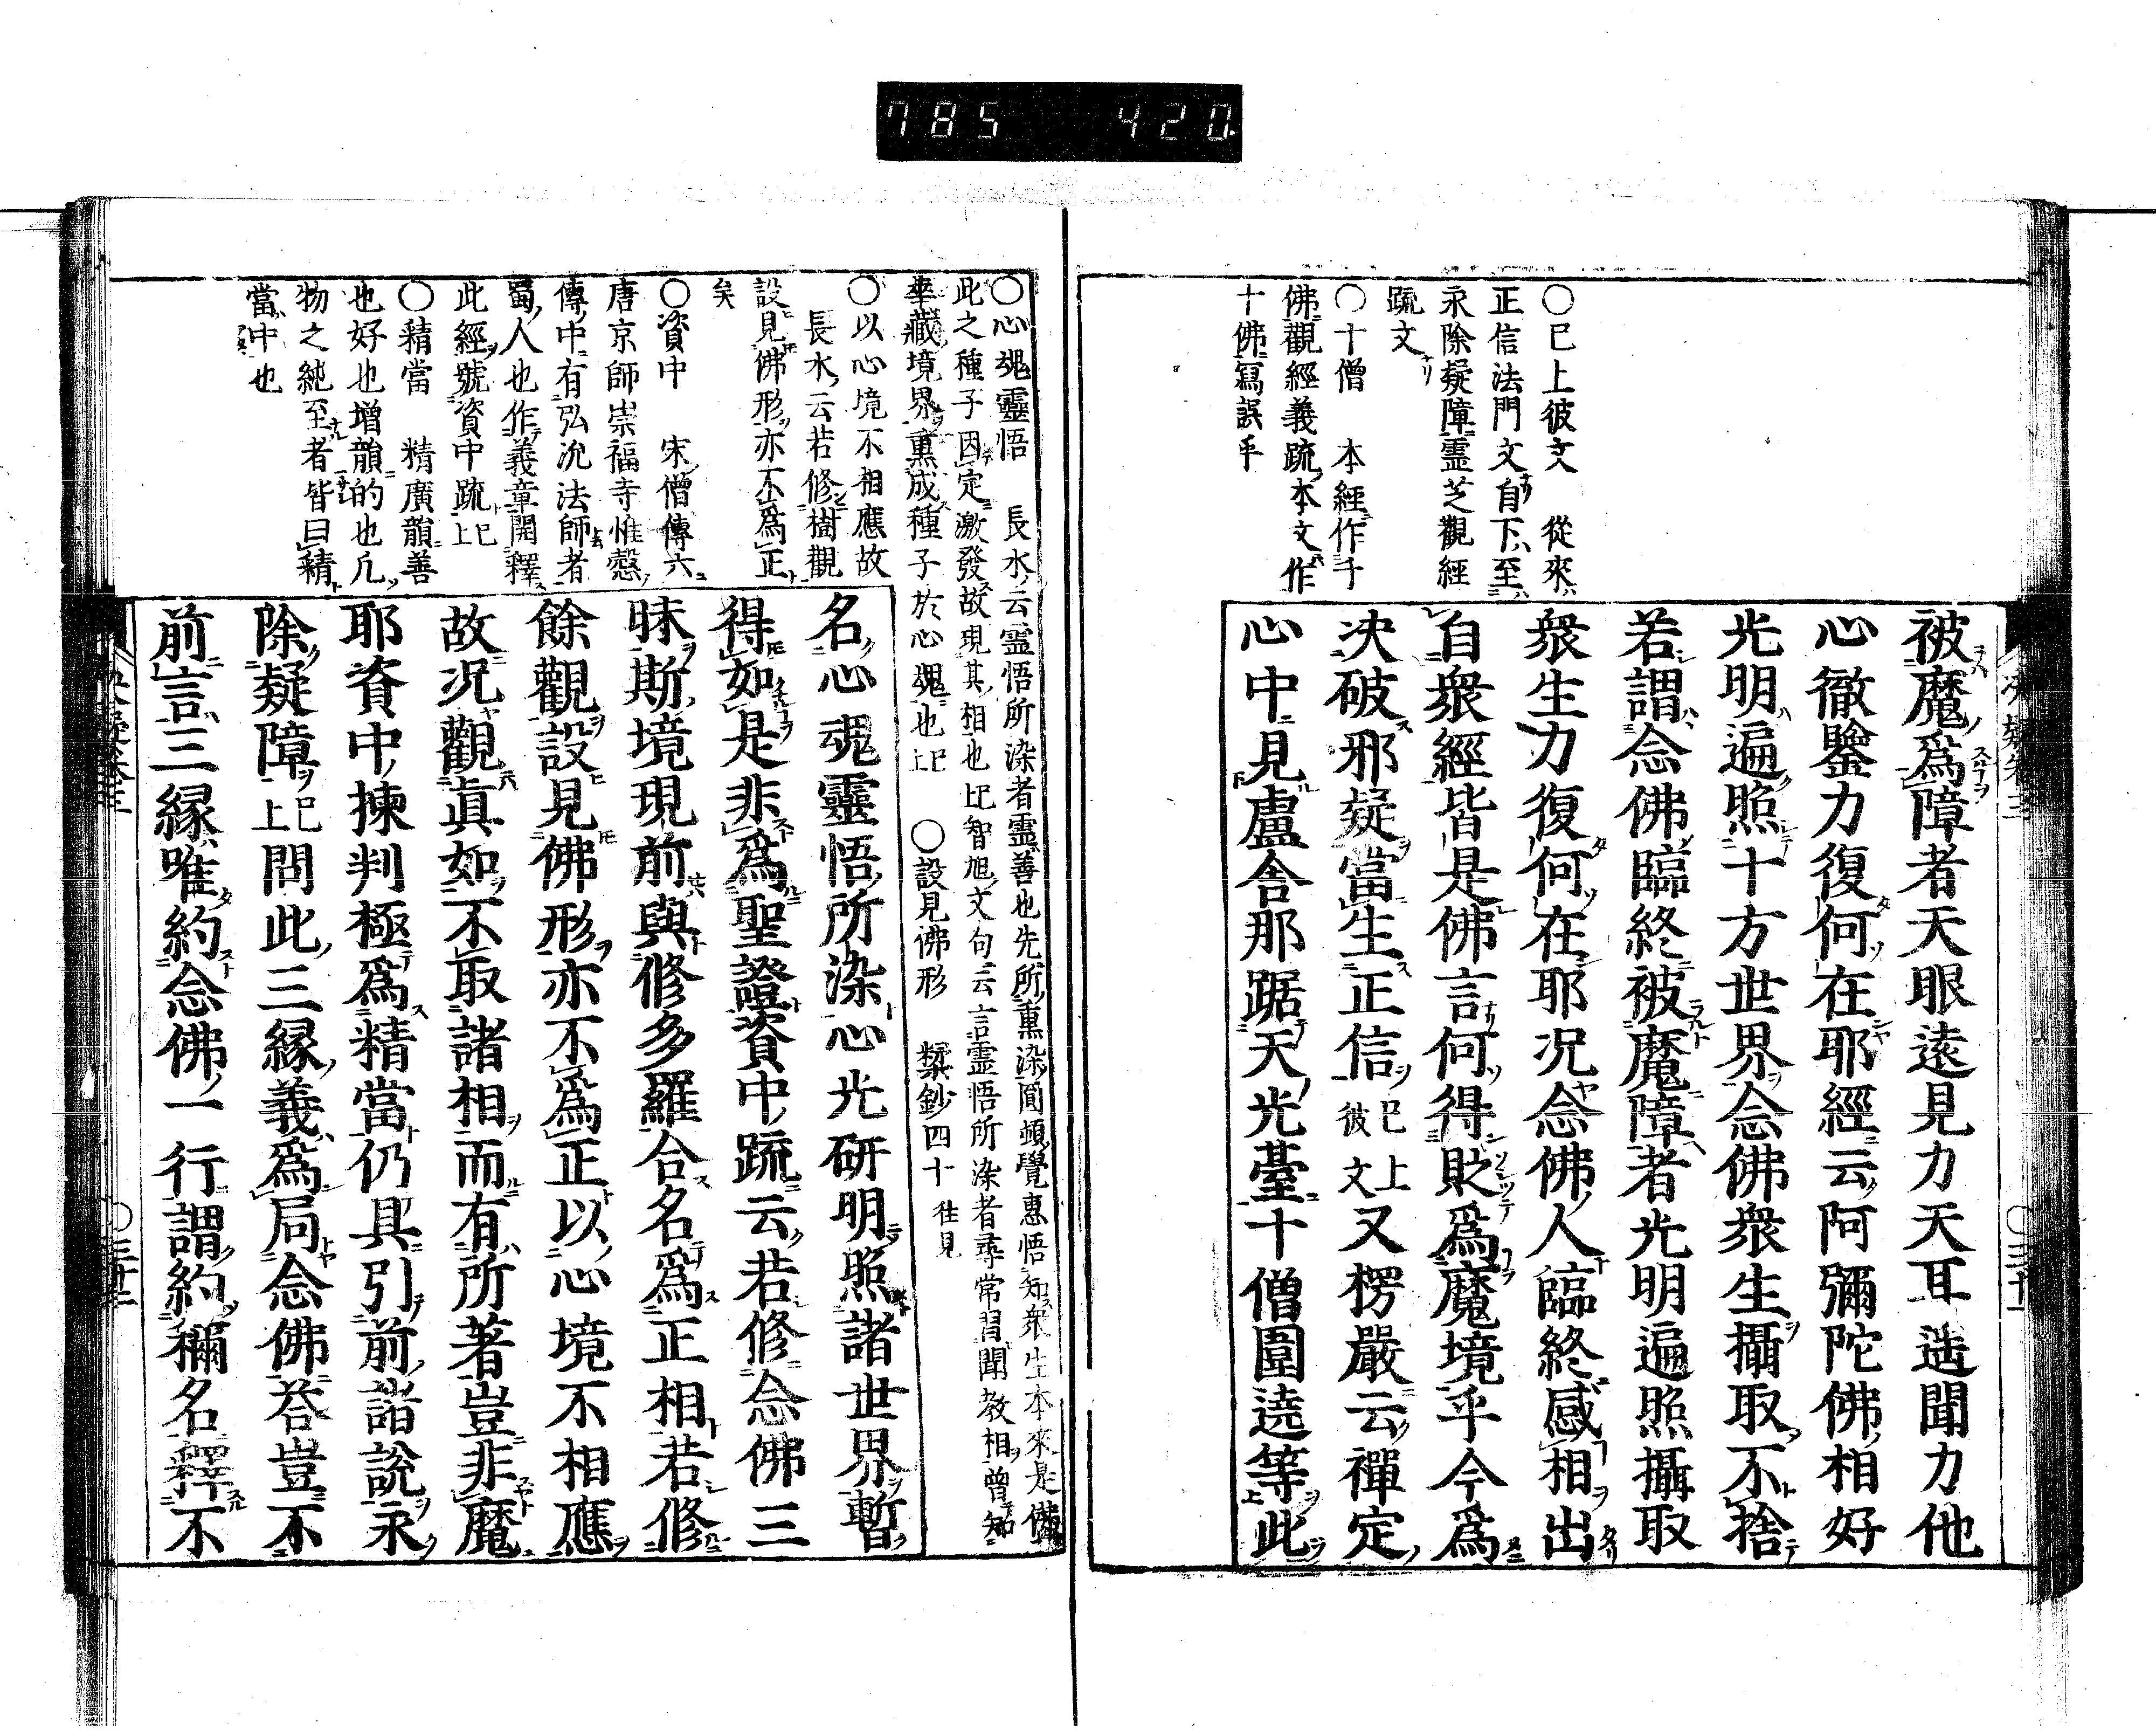 785 420
〇已上彼文 從來
正信法門文自下至
永除疑障靈芝觀經
疏文
〇十僧 本經作千
佛觀經義疏本文作
十佛寫誤乎
被魔爲障者天眼遠見力天耳遥聞力他
心徹鑒力復何在耶經云阿彌陀佛相好
光明遍照十方世界念佛衆生攝取不捨
若謂念佛臨終被魔障者光明遍照攝取
衆生力復何在耶况念佛人臨終感相出
自衆經皆是佛言何得貶爲魔境乎今爲
决破邪疑當生正信已上彼文又楞嚴云禪定
心中見盧舍那踞天光臺十僧圍遶等此
〇心魂靈悟 長水云靈悟所染者靈善也先所熏染圓頓覺惠悟知衆生本來是佛
此之種子因定激發故現其相也已上智旭文句云言靈悟所染者尋常習聞教相曾知
華藏境界熏成種子於心魂也已上 〇設見佛形 槩鈔四十往見
〇以心境不相應故
長水云若修樹觀
設見佛形亦不爲正
矣
〇資中 宋僧傳六
唐京師崇福寺惟慤
傳中有弘沇法師者
蜀人也作義章開釋
此經號資中疏已上
〇精當 精廣韻善
也好也增韻的也凡
物之純至者皆曰精
當中也
名心魂靈悟所染心光研明照諸世界暫
得如是非爲聖證資中疏云若修念佛三
昧斯境現前與修多羅合名爲正相若修
餘觀設見佛形亦不爲正以心境不相應
故况觀眞如不取諸相而有所著豈非魔
耶資中揀判極爲精當仍具引前諸說永
除疑障已上問此三縁義爲局念佛荅豈不
前言三縁唯約念佛一行謂約稱名釋不